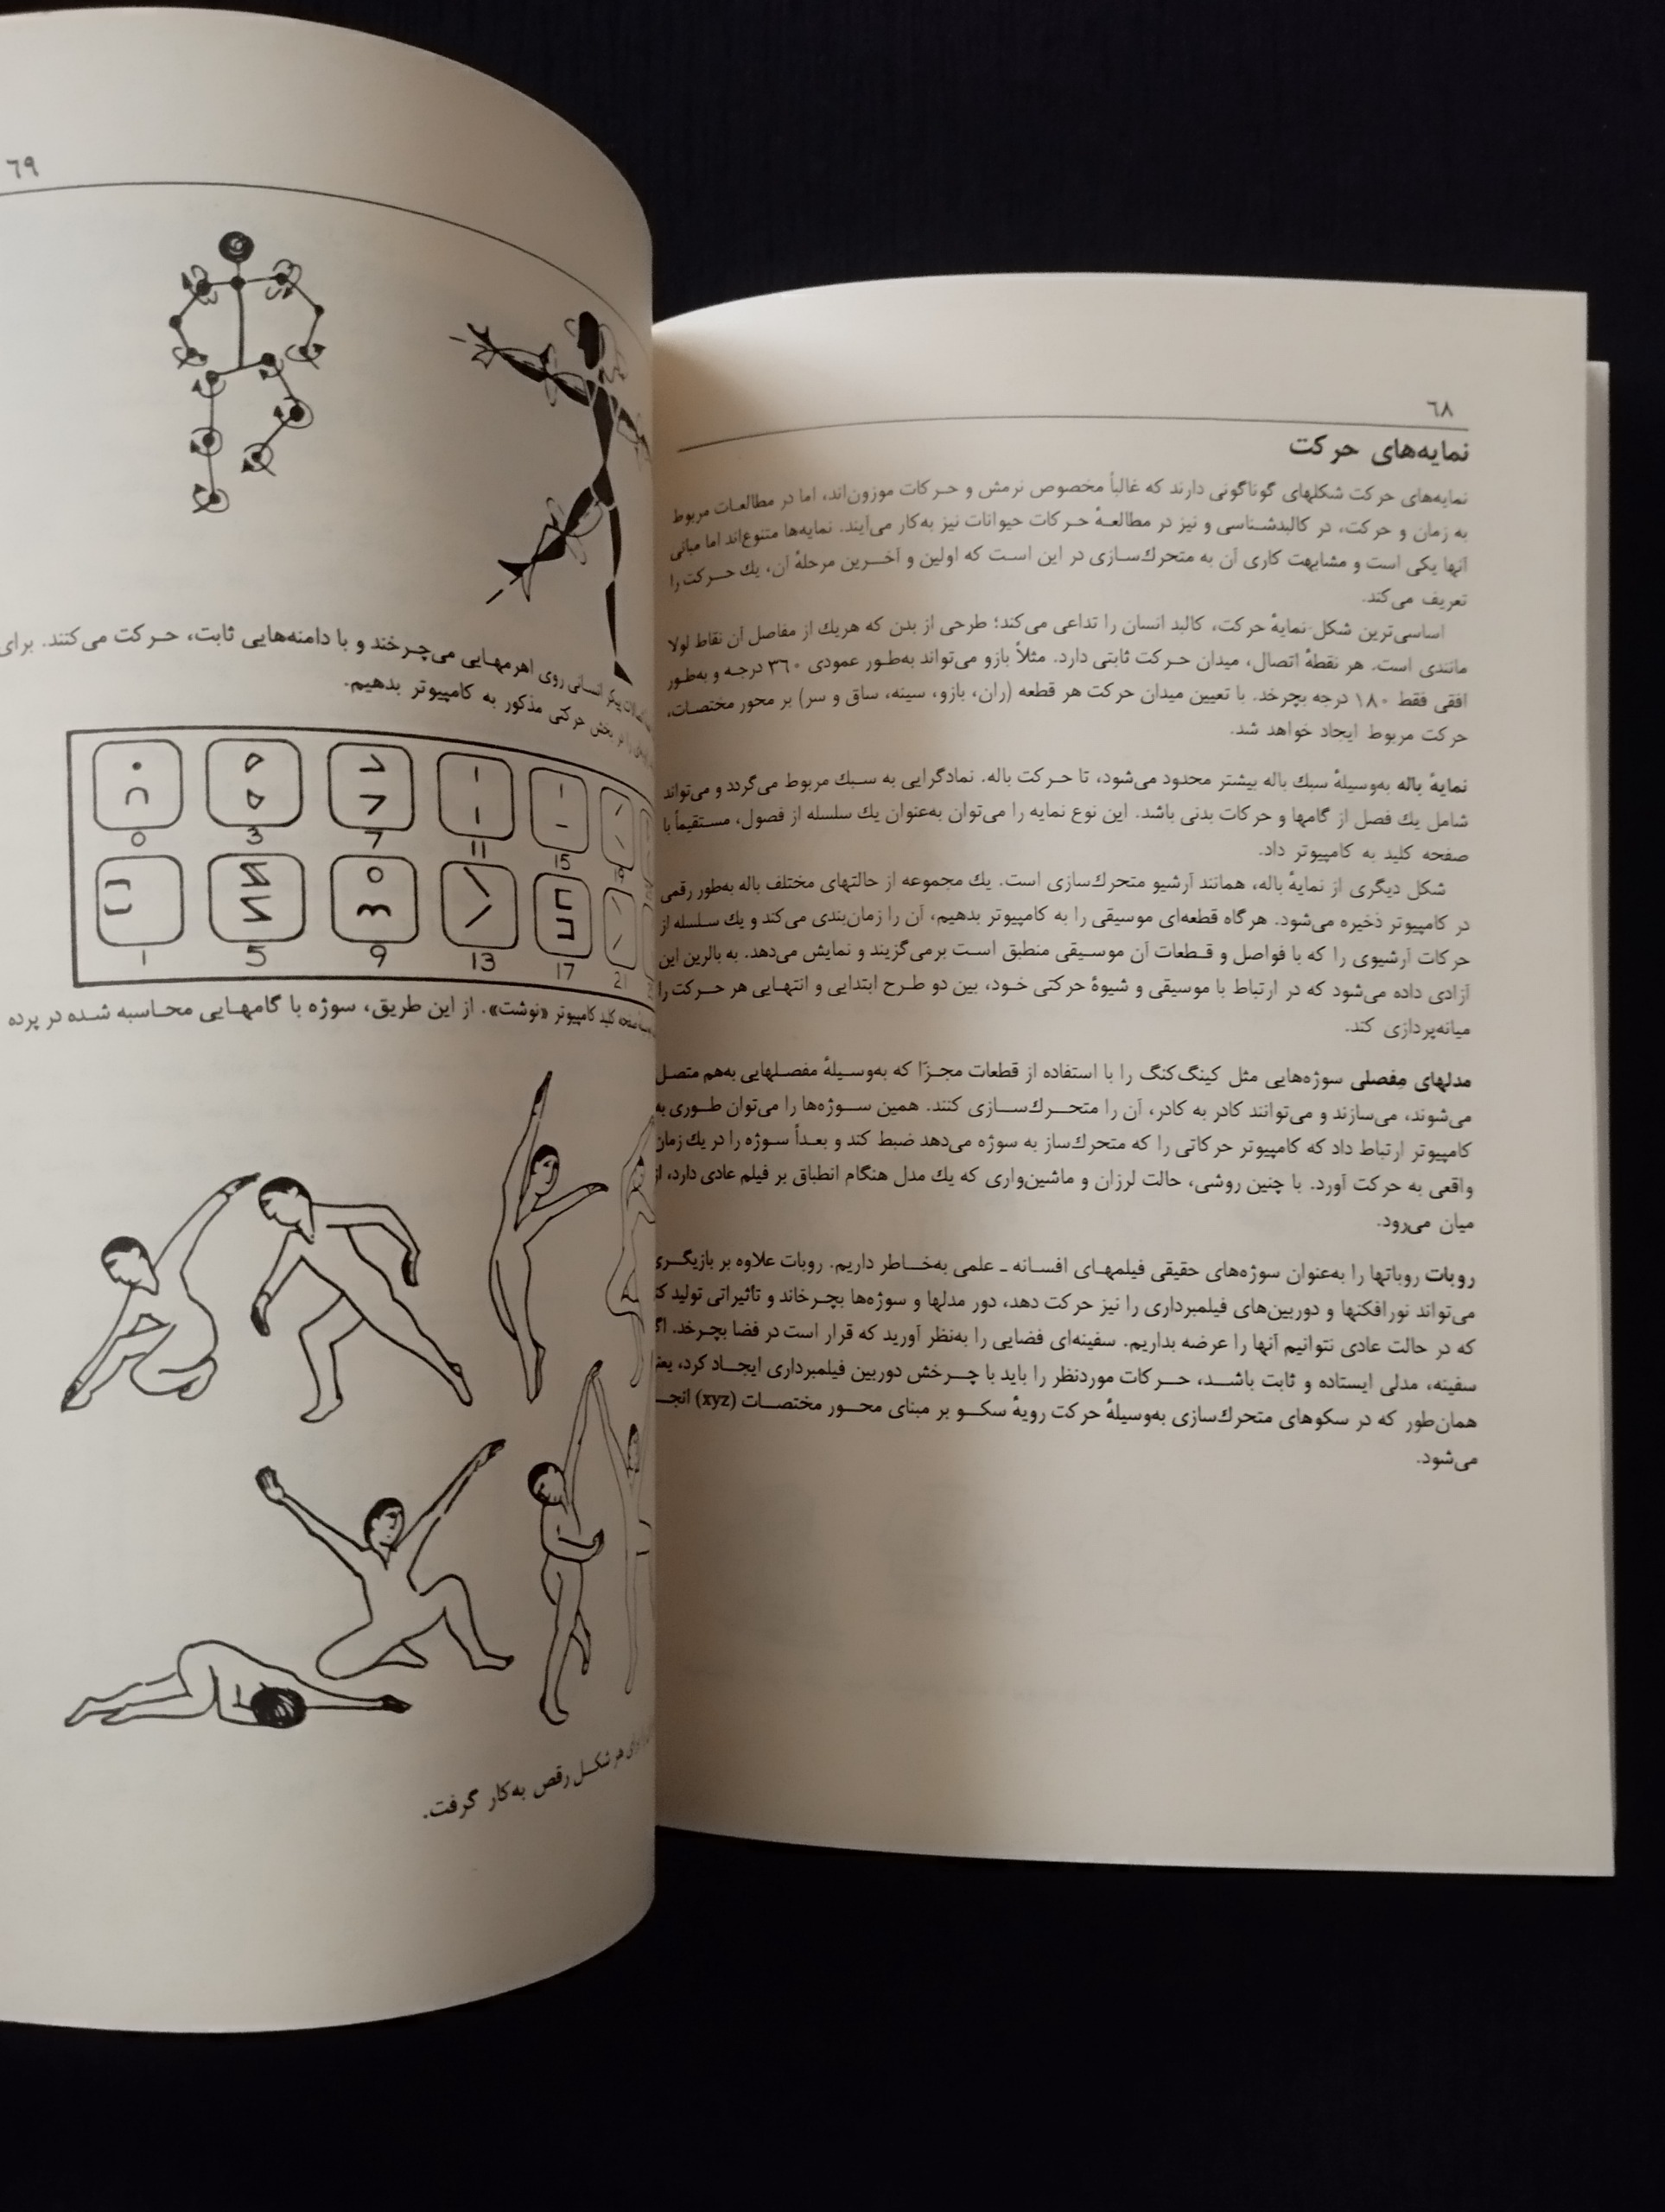 ٦٨
نمایه‌های حرکت
نمایه‌های حرکت شکلهای گوناگونی دارند که غالباً مخصوص نرمش و حرکات موزون‌اند، اما در مطالعات مربوط
به زمان و حرکت، در کالبدشناسی و نیز در مطالعهٔ حرکات حیوانات نیز به‌کار می‌آیند. نمایه‌ها متنوع‌اند اما مبانی
آنها یکی است و مشابهت کاری آن به متحرك‌سازی در این است که اولین و آخرین مرحلهٔ آن، یك حرکت را
تعریف می‌کند.
اساسی‌ترین شکل نمایهٔ حرکت، کالبد انسان را تداعی می‌کند؛ طرحی از بدن که هریك از مفاصل آن نقاط لولا
مانندی است. هر نقطهٔ اتصال، میدان حرکت ثابتی دارد. مثلاً بازو می‌تواند به‌طور عمودی ۳٦۰ درجه و به‌طور
افقی فقط ۱۸۰ درجه بچرخد. با تعیین میدان حرکت هر قطعه (ران، بازو، سینه، ساق و سر) بر محور مختصات،
حرکت مربوط ایجاد خواهد شد.
نمایهٔ باله به‌وسیلهٔ سبك باله بیشتر محدود می‌شود، تا حرکت باله. نمادگرایی به سبك مربوط می‌گردد و می‌تواند
شامل یك فصل از گامها و حرکات بدنی باشد. این نوع نمایه را می‌توان به‌عنوان یك سلسله از فصول، مستقیماً با
صفحه کلید به کامپیوتر داد.
شکل دیگری از نمایهٔ باله، همانند آرشیو متحرك‌سازی است. یك مجموعه از حالتهای مختلف باله به‌طور رقمی
در کامپیوتر ذخیره می‌شود. هرگاه قطعه‌ای موسیقی را به کامپیوتر بدهیم، آن را زمان‌بندی می‌کند و یك سلسله از
حرکات آرشیوی را که با فواصل و قطعات آن موسیقی منطبق است برمی‌گزیند و نمایش می‌دهد. به بالرین این
آزادی داده می‌شود که در ارتباط با موسیقی و شیوهٔ حرکتی خود، بین دو طرح ابتدایی و انتهایی هر حرکت را
میانه‌پردازی کند.
مدلهای مفصلی سوژه‌هایی مثل کینگ‌کنگ را با استفاده از قطعات مجزّا که به‌وسیلهٔ مفصلهایی به‌هم متصل
می‌شوند، می‌سازند و می‌توانند کادر به کادر، آن را متحرك‌سازی کنند. همین سوژه‌ها را می‌توان طوری به
کامپیوتر ارتباط داد که کامپیوتر حرکاتی را که متحرك‌ساز به سوژه می‌دهد ضبط کند و بعداً سوژه را در یك زمان
واقعی به حرکت آورد. با چنین روشی، حالت لرزان و ماشین‌واری که یك مدل هنگام انطباق بر فیلم عادی دارد، از
میان می‌رود.
روبات روباتها را به‌عنوان سوژه‌های حقیقی فیلمهای افسانه ـ علمی به‌خاطر داریم. روبات علاوه بر بازیگری
می‌تواند نورافکنها و دوربین‌های فیلمبرداری را نیز حرکت دهد، دور مدلها و سوژه‌ها بچرخاند و تأثیراتی تولید
که در حالت عادی نتوانیم آنها را عرضه بداریم. سفینه‌ای فضایی را به‌نظر آورید که قرار است در فضا بچرخد.
سفینه، مدلی ایستاده و ثابت باشد، حرکات موردنظر را باید با چرخش دوربین فیلمبرداری ایجاد کرد،
همان‌طور که در سکوهای متحرك‌سازی به‌وسیلهٔ حرکت رویهٔ سکو بر مبنای محور مختصات (xyz)
می‌شود.
٦٩
پیکر انسانی روی اهرمهایی می‌چرخند و با دامنه‌هایی ثابت، حرکت می‌کنند. برای
بخش حرکتی مذکور به کامپیوتر بدهیم.
0 3 7 11 15 19
1 5 9 13 17 21
صفحه کلید کامپیوتر «نوشت». از این طریق، سوژه با گامهایی محاسبه شده در پرده
هر شکل رقص به‌کار گرفت.